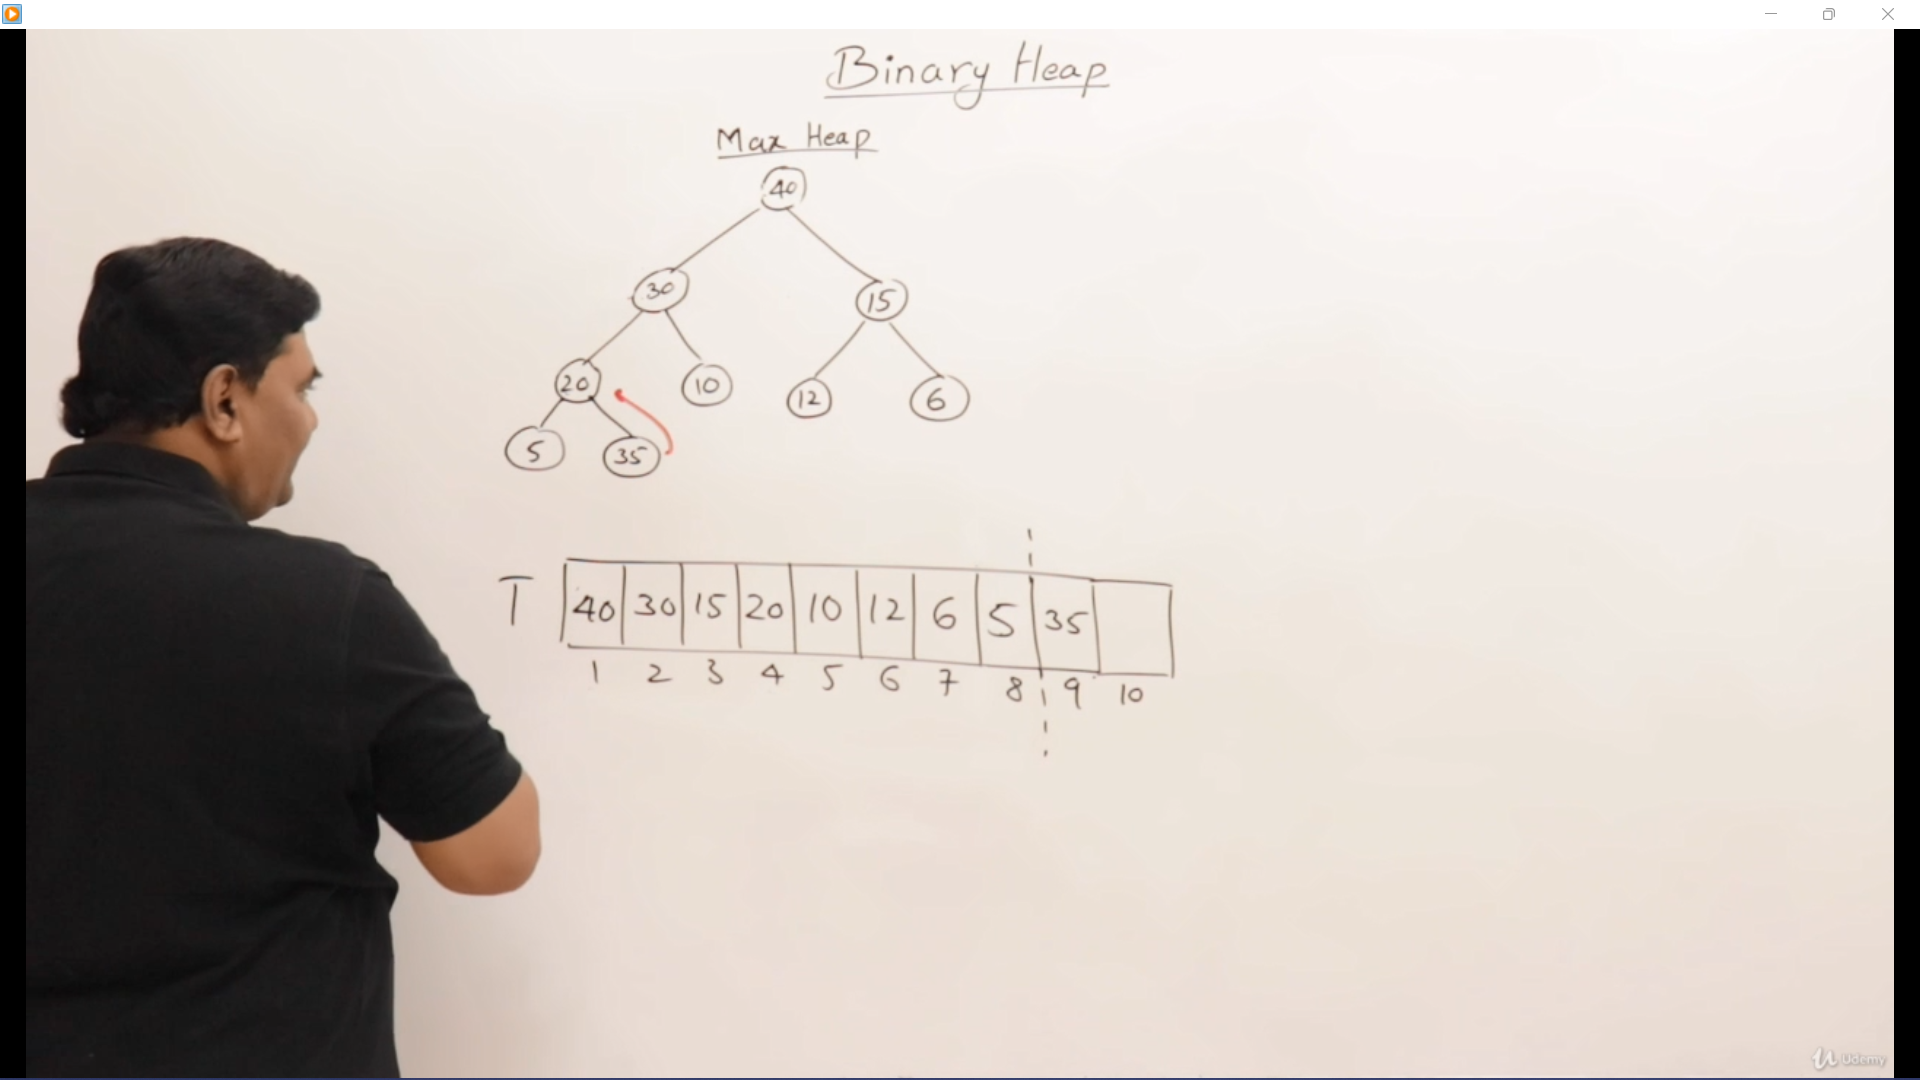 Binary Heap
Max Heap
40
30 15
20 10 12 6
5 35
T 40 30 15 20 10 12 6 5 35
1 2 3 4 5 6 7 8 9 10
Udemy